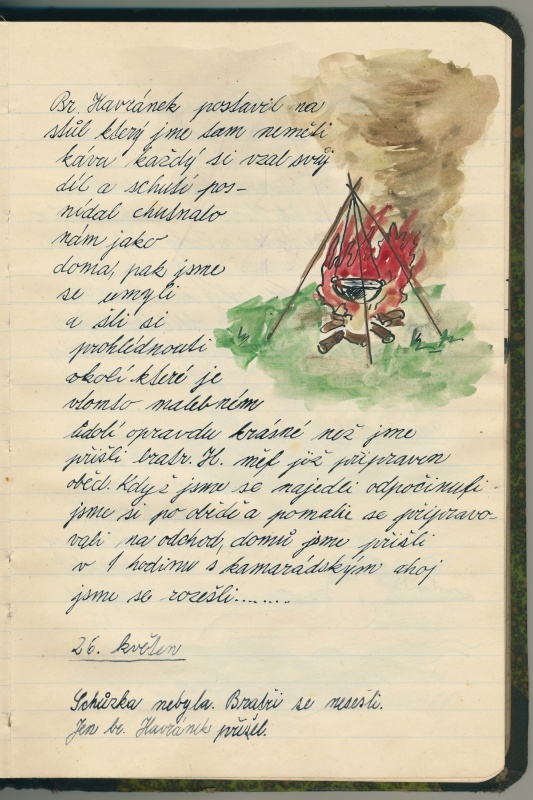 Br. Havránek postavil na
stůl který jme tam neměli
kávu každý si vzal svůj
díl a schutí pos-
nídal chutnalo
nám jako
doma, pak jsme
se umyli
a šli si
prohlédnouti
okolí které je
vtomto malebném
údolí opravdu krásné než jme
přišli bratr. H. měl již připraven
oběd. Když jsme se najedli odpočinuli -
jsme si po obědě a pomalu se připravo-
vali na odchod, domů jsme přišli
v 1 hodinu s kamarádským ahoj
jsme se rozešli........
26. květen
Schůzka nebyla. Bratři se nesešli.
Jen br. Havránek přišel.